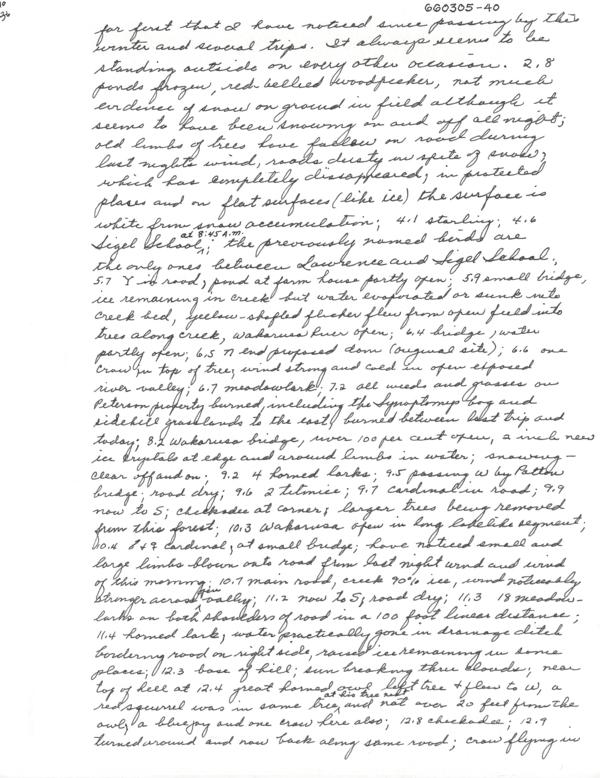 660305-40
for first that I have noticed since passing by this
winter and several trips. It always seems to be
standing outside on every other occasion. 2.8
ponds frozen, red-bellied woodpecker, not much
evidence of snow on ground in field although it
seems to have been snowing on and off all night;
old limbs of trees have fallen on road during
last nights wind, roads dusty in spite of snow,
which has completely disappeared; in protected
places and on flat surfaces (like ice) the surface is
white from snow accumulation; 4.1 starling; 4.6
Sigel School, at 8:45 A.M.; the previously named birds are
the only ones between Lawrence and Sigel School;
5.7 Y in road, pond at farm house partly open; 5.9 small bridge,
ice remaining in creek but water evaporated or sunk into
creek bed, yellow-shafted flicker flew from open field into
trees along creek, Wakarusa River open; 6.4 bridge, water
partly open; 6.5 N end proposed dam (original site); 6.6 one
crow in top of tree, wind strong and cold in open exposed
river valley; 6.7 meadowlark; 7.2 all weeds and grasses on
Peterson property burned, including the Synaptomys bog and
sidehill grasslands to the east, burned between last trip and
today; 8.2 Wakarusa bridge, river 100 per cent open, 2 inch new
ice crystals at edge and around limbs in water; snowing-
clear off and on; 9.2 4 horned larks; 9.5 passing W by Patton
bridge; road dry; 9.6 2 titmice; 9.7 cardinal in road; 9.9
now to S; chickadee at corner; larger trees being removed
from this forest; 10.3 Wakarusa open in long lakelike segment;
10.4 ♂ + ♀ cardinal, at small bridge; have noticed small and
large limbs blown onto road from last night wind and wind
of this morning; 10.7 main road, creek 90% ice, wind noticeably
stronger across valley; 11.2 now to S; road dry; 11.3 18 meadow-
larks on both shoulders of road in a 100 foot linear distance;
11.4 horned lark, water practically gone in drainage ditch
bordering road on right side, raised ice remaining in some
places; 12.3 base of hill; sun breaking thru clouds; near
top of hill at 12.4 great horned owl left tree + flew to W, a
red squirrel was in same tree at his tree nest and not over 20 feet from the
owl, a bluejay and one crow here also; 12.8 chickadee; 12.9
turned around and now back along same road; crow flying in